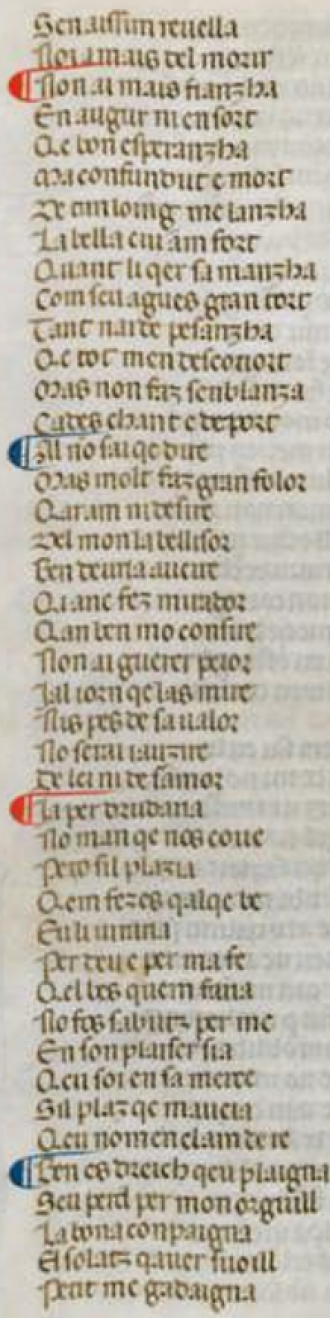 Sen aissim reuella
Noi a mais del morir
Non ai mais fianzha
En augur ni en sort
Qe bon esperanzha
Ma confundut e mort
De tan loing me lanzha
La bella cui am fort
Quant li qer sa manzha
Com seu agues gran tort
Tant nai de pesanzha
Qe tot men desconort
Mas non faz senblanza
Cades chant e deport
Al no sai qe dire
Mas molt faz gran folor
Qar am ni desire
Del mon la bellisor
Ben deuria aucire
Qi anc fez mirador
Qan ben mo consire
Non ai guerer peior
Ial iorn qe las mire
Nis pes de sa ualor
No serai iauzire
De lei ni de samor
Ia per drudaria
No man qe nos coue
Pero sil plazia
Qem fezes qalqe be
Eu li iuraria
Per deu e per ma fe
Qel bes quem faria
No fos sabutz per me
En son plaiser sia
Qeu soi en sa merce
Sil plaz qe maucia
Qeu nomen clam de re
Ben es dreich qeu plaigna
Seu perd per mon orguill
La bona conpaigna
El solatz qauer suoill
Petit me gadaigna